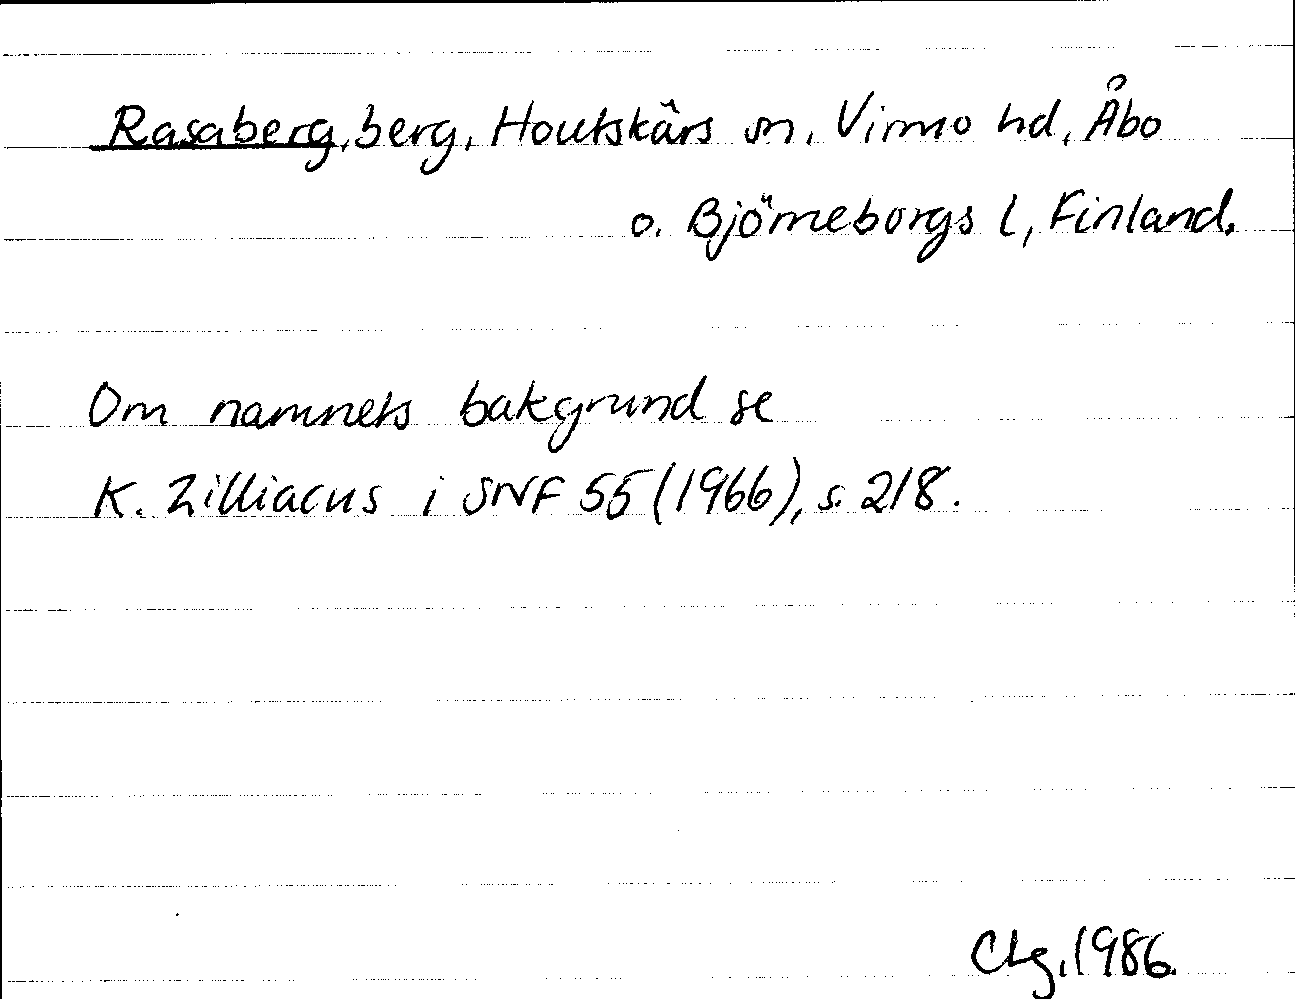 Rasaberg, berg, Houtskärs sn, Virmo hd, Åbo
o. Björneborgs l, Finland.
Om namnets bakgrund se
K. Zilliacus i SNF 55 (1966), s. 218.
CLg, 1986.